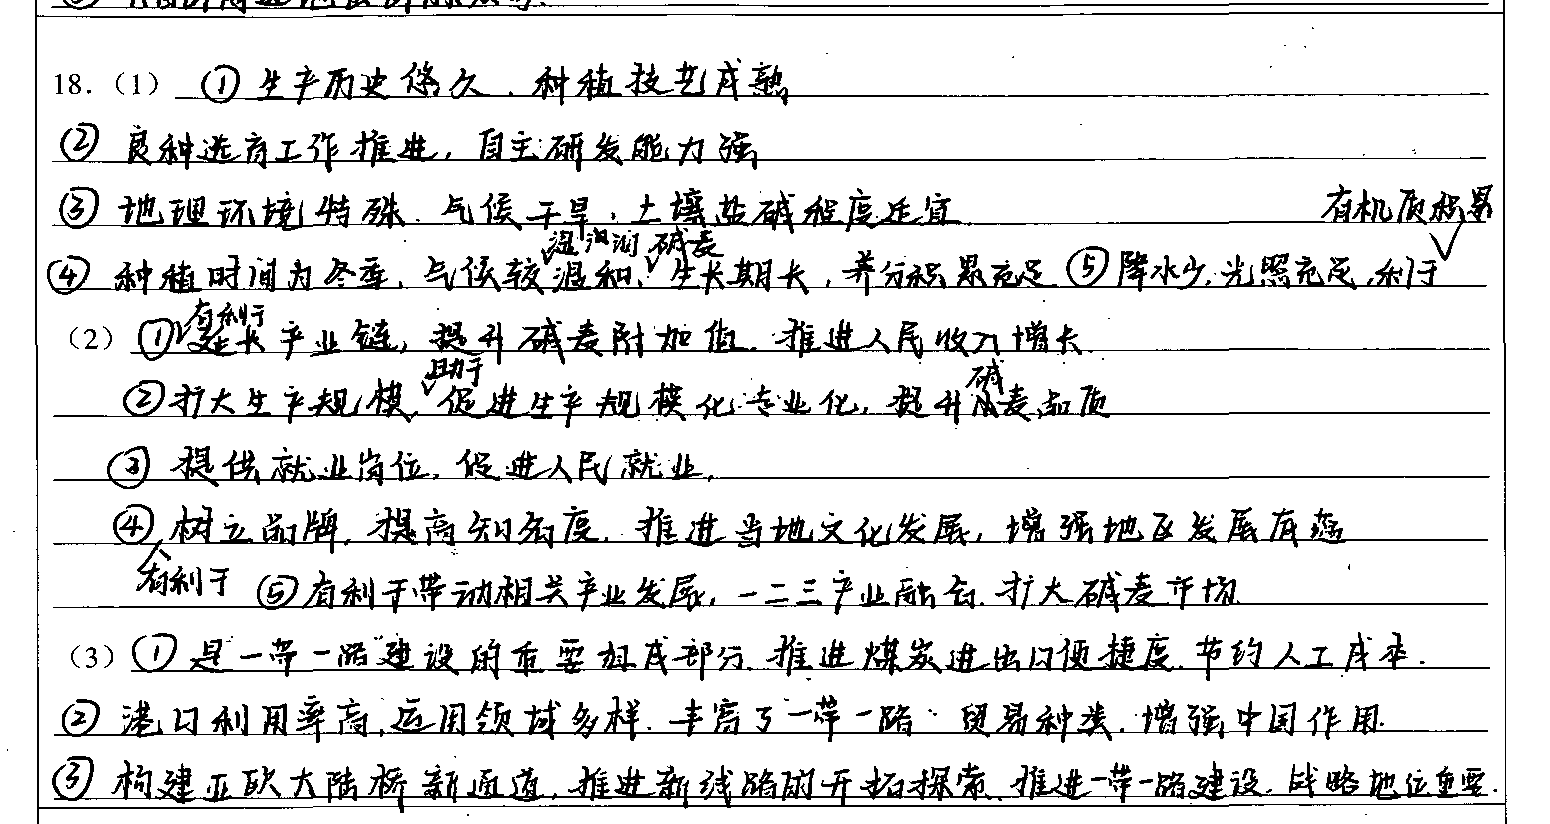 18.(1) ①生产历史悠久,种植技艺成熟
②良种选育工作推进,自主研发能力强
③地理环境特殊.气候干旱,土壤盐碱程度适宜
有机质积累
湿润 碱麦
④种植时间为冬季,气候较温和,生长期长,养分积累充足 ⑤降水少,光照充足,利于
有利于
(2) ①延长产业链,提升碱麦附加值.推进人民收入增长.
助于 碱
②扩大生产规模,促进生产规模化专业化,提升麦品质
③提供就业岗位,促进人民就业,
④树立品牌,提高知名度,推进当地文化发展,增强地区发展底蕴
有利于 ⑤有利于带动相关产业发展,一二三产业融合.扩大碱麦市场.
(3) ①是"一带一路"建设的重要组成部分.推进煤炭进出口便捷度.节约人工成本.
②港口利用率高,运用领域多样.丰富了一带一路 贸易种类.增强中国作用.
③构建亚欧大陆桥新通道,推进新线路的开拓探索.推进一带一路建设.战略地位重要.